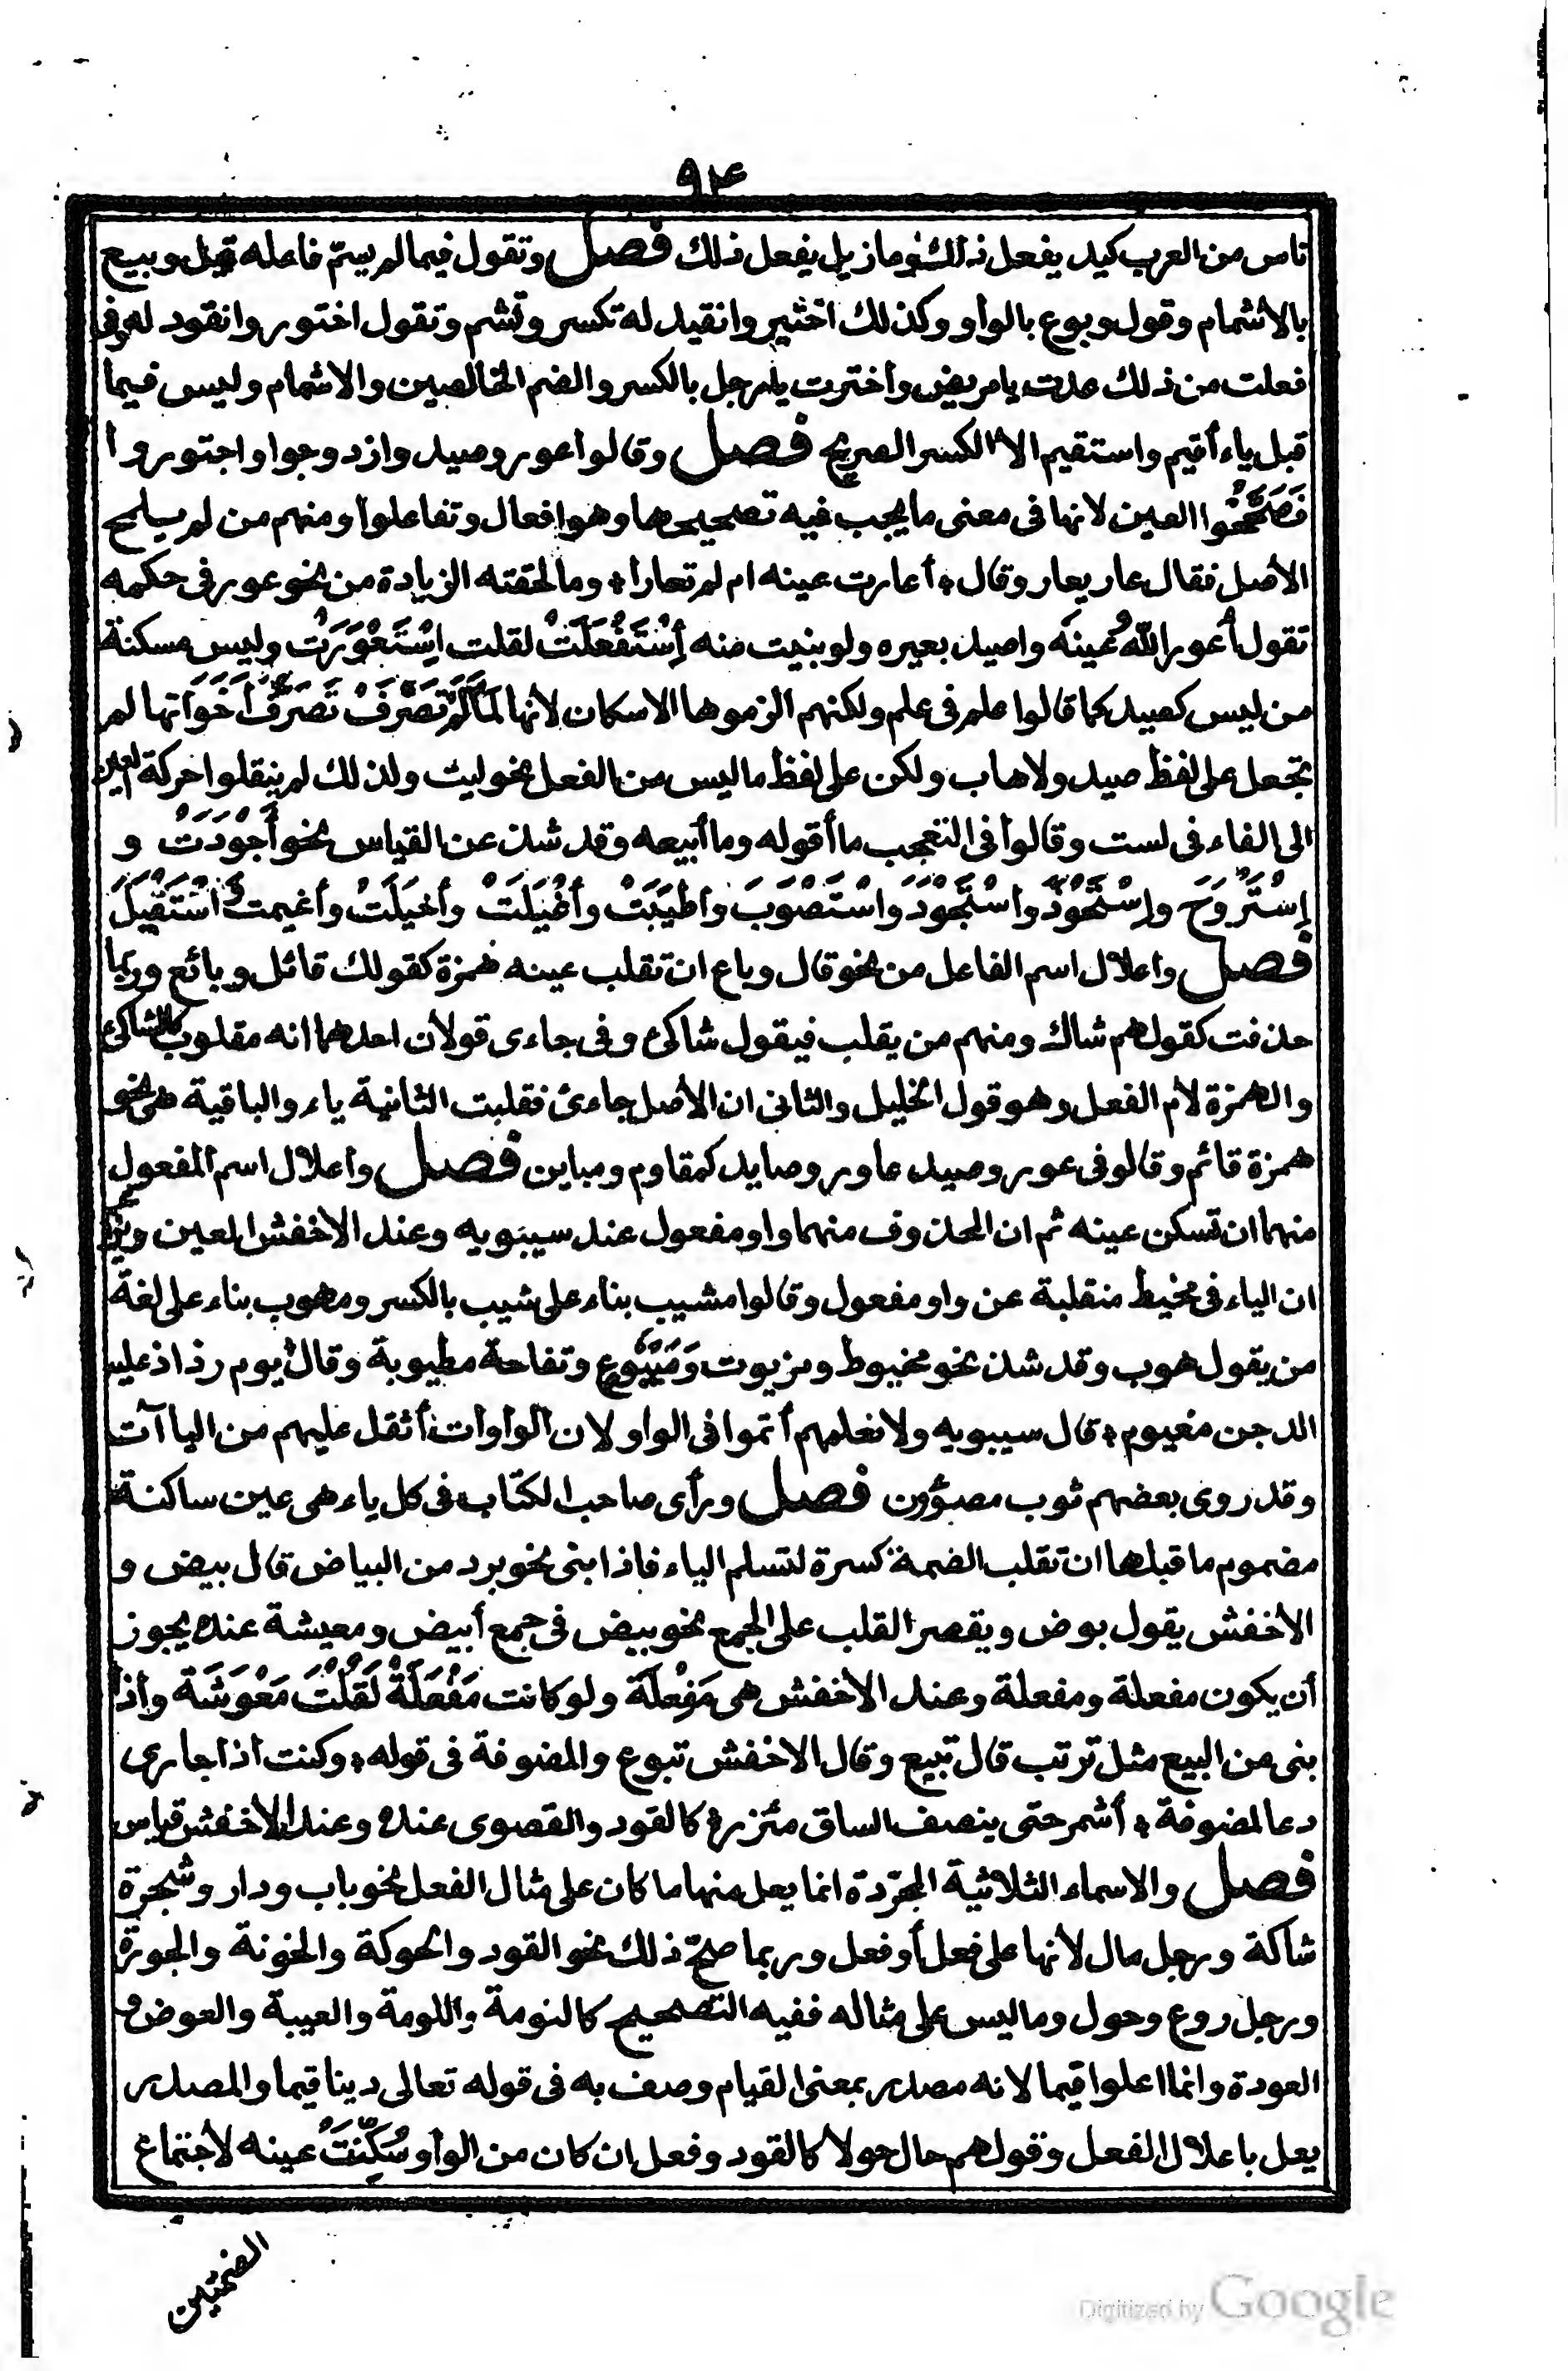 ٩٤
ناس من العرب كيد يفعل ذلك وما زيل يفعل ذلك فصل وتقول فيما لم يسم فاعله قيل وبيع
بالاشمام وقول وبوع بالواو وكذلك اختير وانقيد له تكسر وتشم وتقول اختور وانقود له وفى
فعلت من ذلك عدت يا مريض واخترت يا رجل بالكسر والضم الخالصين والاشمام وليس فيما
قبل ياء أقيم واستقيم الا الكسر الصريح فصل وقالوا عور وصيد وازدوجوا واجتوروا
فَصَحَّحُوا العين لانها فى معنى ما يجب فيه تصحيحها وهو افعال وتفاعلوا ومنهم من لم يلمح
الأصل فقال عار يعار وقال ۞ أعارت عينه ام لم تعارا ۞ وما لحقته الزيادة من نحو عور فى حكمه
تقول أعور اللهُ عينَه واصيد بعيره ولو بنيت منه اِسْتَفْعَلْتُ لقلت اِسْتَعْوَرْتُ وليس مسكنة
من ليس كصيد كما قالوا علم فى علم ولكنهم الزموها الاسكان لأنها لَمَّا لَمْ تَصَرَّفْ تَصَرُّفَ أَخَوَاتها لم
تجعل على لفظ صيد ولا هاب ولكن على لفظ ما ليس من الفعل نحو ليت ولذلك لم ينقلوا حركة العين
الى الفاء فى لست وقالوا فى التعجب ما أقوله وما أبيعه وقد شذ عن القياس نحو أَجْوَدَتْ و
اِسْتَرْوَحَ واِسْتَحْوَذَ واسْتَجْوَدَ واسْتَصْوَبَ وأَطْيَبَتْ وأَغْيَلَتْ وأَخْيَلَتْ وأغيمت اسْتَفْيَلَ
فصل واعلال اسم الفاعل من نحو قال وباع ان تقلب عينه همزة كقولك قائل وبائع وربما
حذفت كقولهم شاك ومنهم من يقلب فيقول شاكى وفى جاءى قولان احدهما انه مقلوب كالشاكى
والهمزة لام الفعل وهو قول الخليل والثانى ان الأصل جاءئ فقلبت الثانية ياء والباقية هى نحو
همزة قائم وقالو فى عور وصيد عاور وصايد كمقاوم ومباين فصل واعلال اسم المفعول
منهما ان تسكن عينه ثم ان المحذوف منهما واو مفعول عند سيبويه وعند الاخفش العين ويزعم
ان الياء فى مخيط منقلبة عن واو مفعول وقالوا مشيب بناء على شيب بالكسر ومهوب بناء على لغة
من يقول هوب وقد شذ نحو مخيوط ومزيوت وَمَبْيُوع وتفاحة مطيوبة وقال يوم رذاذ عليه
الدجن مغيوم ۞ قال سيبويه ولا نعلمهم أتموا فى الواو لان الواوات أثقل عليهم من الياآت
وقد روى بعضهم ثوب مصوون فصل ورأى صاحب الكتاب فى كل ياء هى عين ساكنة
مضموم ما قبلها ان تقلب الضمة كسرة لتسلم الياء فاذا بنى نحو برد من البياض قال بيض و
الاخفش يقول بوض ويقصر القلب على الجمع نحو بيض فى جمع أبيض ومعيشة عنده يجوز
أن يكون مفعلة ومفعلة وعند الاخفش هى مَفْعِلَة ولو كانت مَفْعُلَةً لَقُلْتَ مَعُوشَة واذا
بنى من البيع مثل ترتب قال تبيع وقال الاخفش تبوع والمضوفة فى قوله ۞ وكنت اذا جارى
دعا لمضوفة ۞ أشمر حتى ينصف الساق مئزرى كالقود والقصوى عنده وعند الاخفش قياس
فصل والاسماء الثلاثية المجرّدة انما يعل منها ما كان على مثال الفعل نحو باب ودار وشجرة
شاكة ورجل مال لأنها على فعل أو فعل وربما صحّ ذلك نحو القود والحوكة والخونة والجورة
ورجل روع وحول وما ليس على مثاله ففيه التصحيح كالنومة واللومة والعيبة والعوض و
العودة وانما اعلوا قيما لانه مصدر بمعنى القيام وصف به فى قوله تعالى دينا قيما والمصدر
يعل باعلال الفعل وقولهم حال حولا كالقود وفعل ان كان من الواو سُكِّنَتْ عينه لاجتماع
الضمتين
Digitized by Google